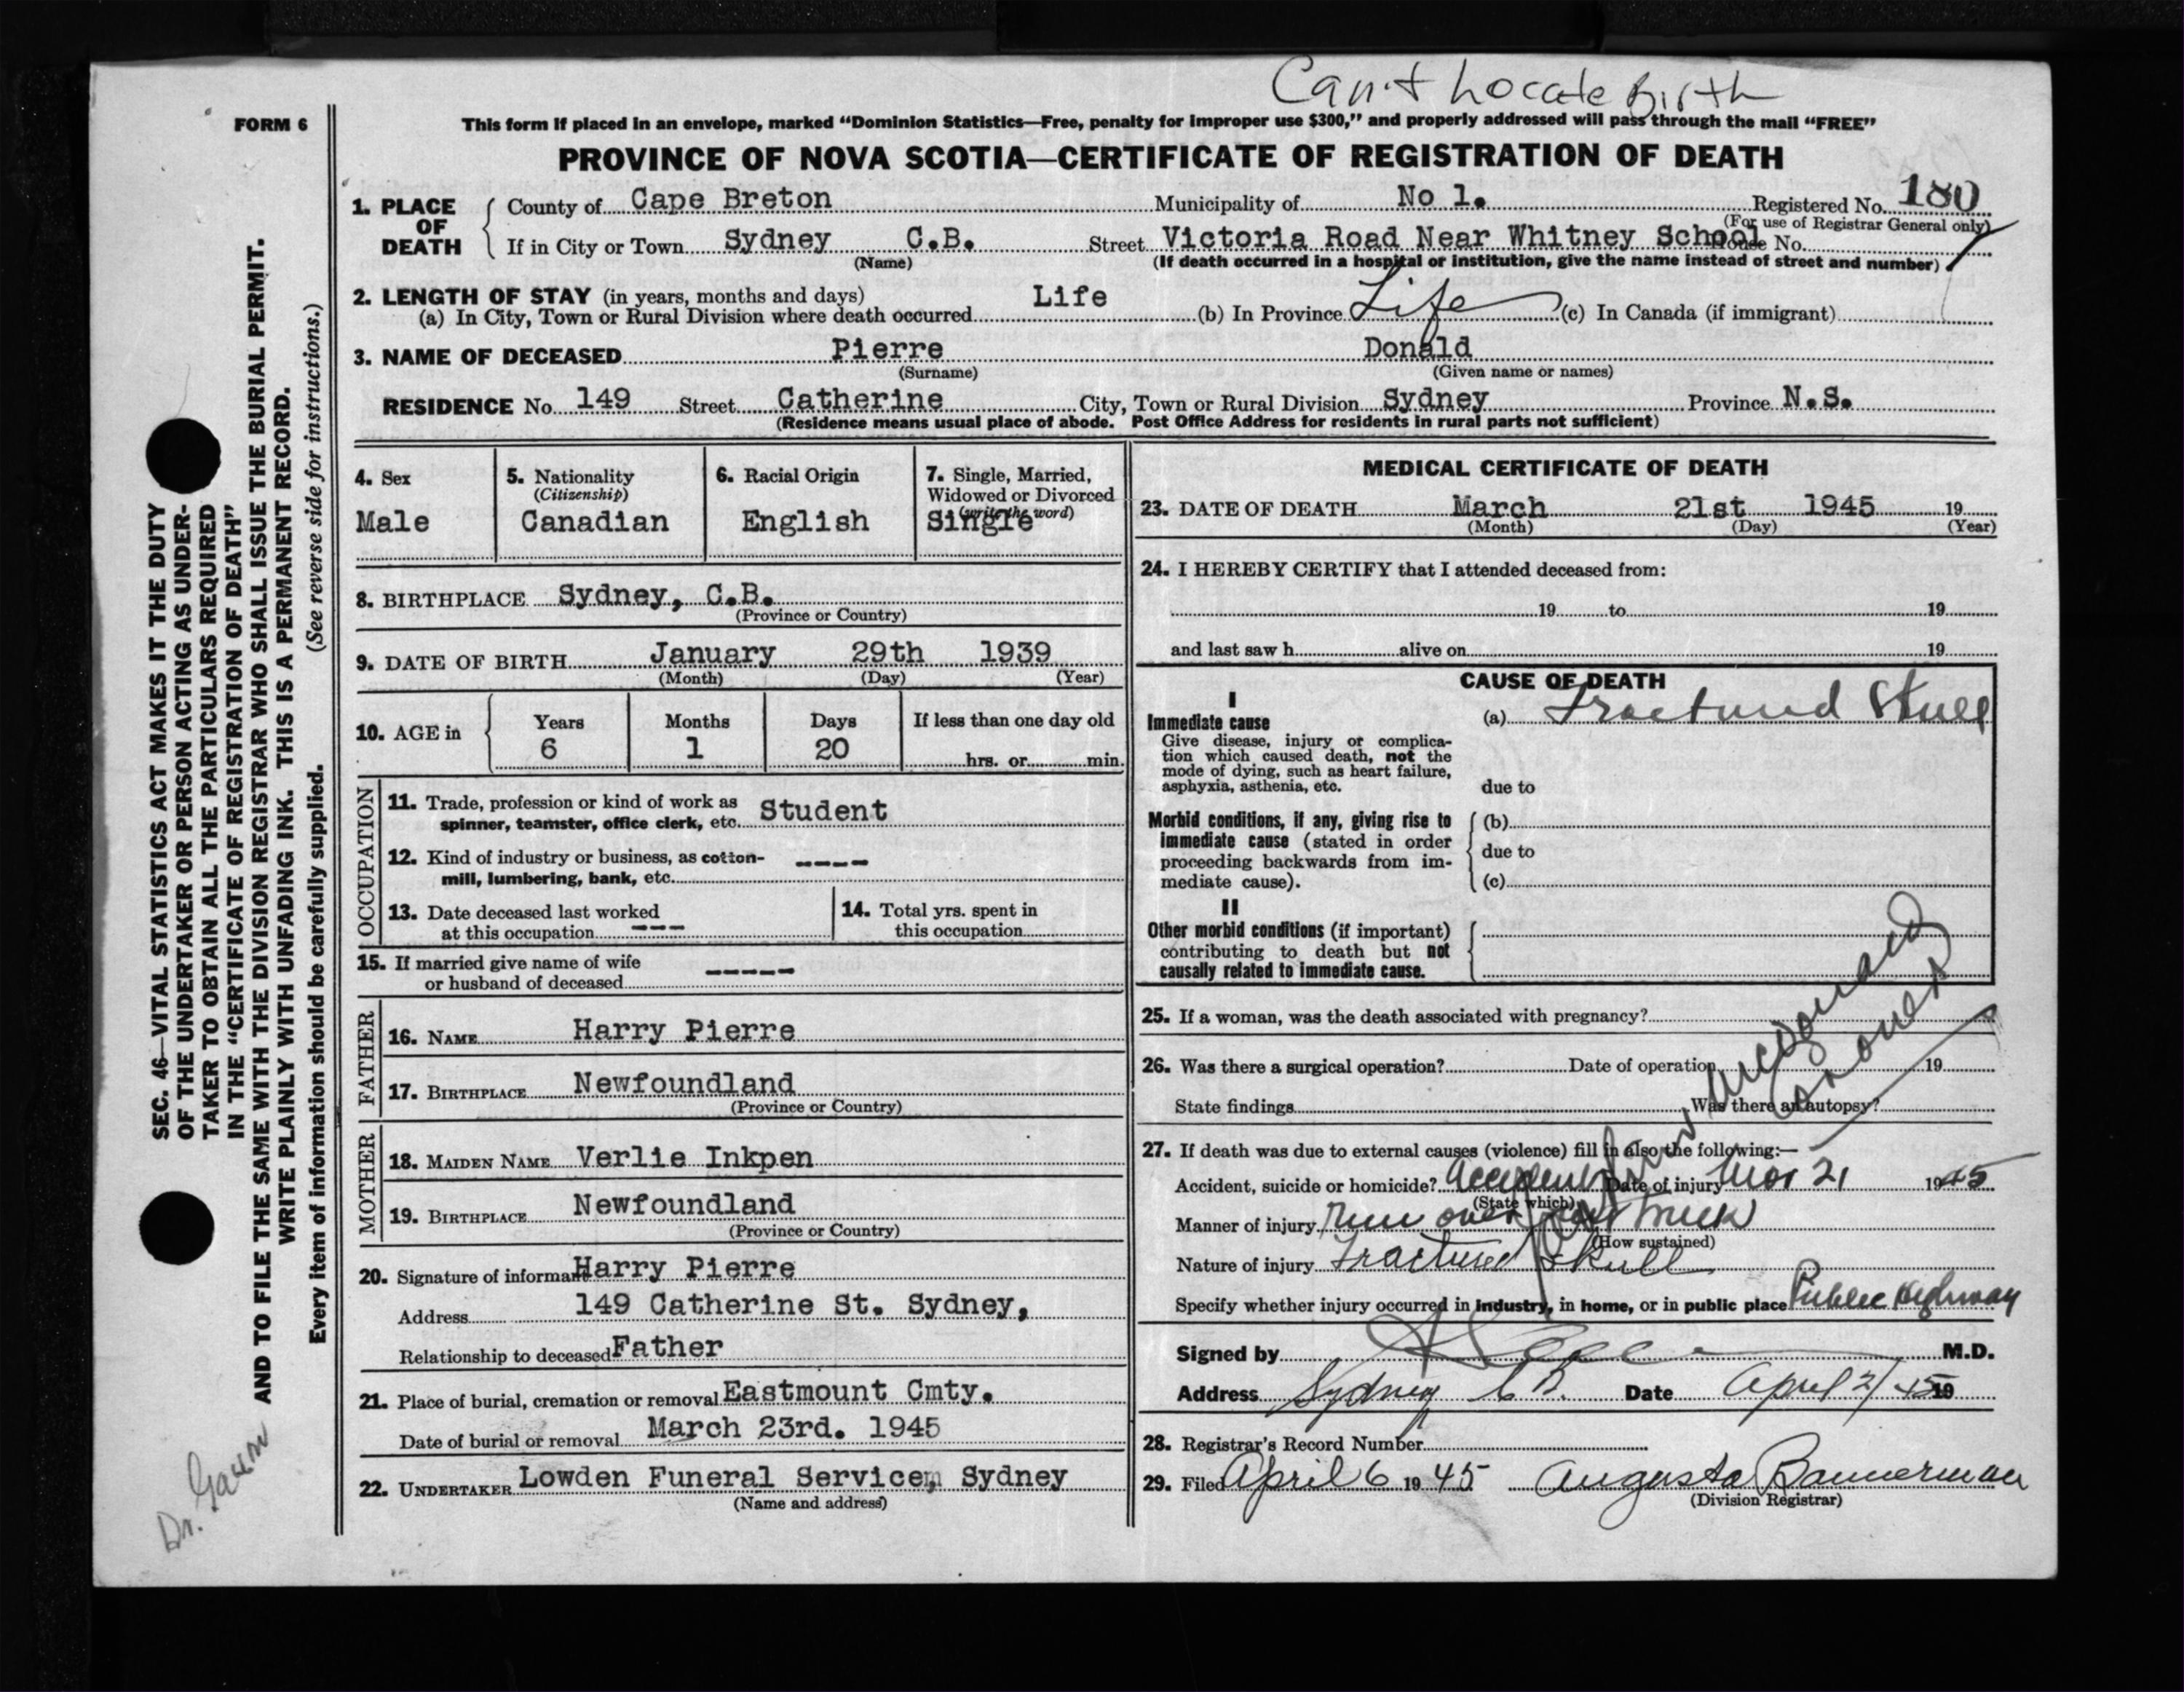 Can't Locate Birth
FORM 6
This form if placed in an envelope, marked “Dominion Statistics—Free, penalty for improper use $300,” and properly addressed will pass through the mail “FREE”
PROVINCE OF NOVA SCOTIA—CERTIFICATE OF REGISTRATION OF DEATH
1. PLACE OF DEATH
County of Cape Breton Municipality of No 1. Registered No. 180
(For use of Registrar General only)
If in City or Town Sydney C.B. Street Victoria Road Near Whitney School House No.
(Name) (If death occurred in a hospital or institution, give the name instead of street and number)
2. LENGTH OF STAY (in years, months and days)
(a) In City, Town or Rural Division where death occurred Life (b) In Province Life (c) In Canada (if immigrant)
3. NAME OF DECEASED Pierre Donald
(Surname) (Given name or names)
RESIDENCE No. 149 Street Catherine City, Town or Rural Division Sydney Province N.S.
(Residence means usual place of abode. Post Office Address for residents in rural parts not sufficient)
4. Sex
Male
5. Nationality
(Citizenship)
Canadian
6. Racial Origin
English
7. Single, Married,
Widowed or Divorced
(write the word)
Single
8. BIRTHPLACE Sydney, C.B.
(Province or Country)
9. DATE OF BIRTH January 29th 1939
(Month) (Day) (Year)
10. AGE in Years Months Days If less than one day old
6 1 20 hrs. or min.
OCCUPATION
11. Trade, profession or kind of work as
spinner, teamster, office clerk, etc. Student
12. Kind of industry or business, as cotton-
mill, lumbering, bank, etc. ----
13. Date deceased last worked
at this occupation ---
14. Total yrs. spent in
this occupation
15. If married give name of wife
or husband of deceased -----
FATHER
16. NAME Harry Pierre
17. BIRTHPLACE Newfoundland
(Province or Country)
MOTHER
18. MAIDEN NAME Verlie Inkpen
19. BIRTHPLACE Newfoundland
(Province or Country)
20. Signature of informant Harry Pierre
Address 149 Catherine St. Sydney,
Relationship to deceased Father
21. Place of burial, cremation or removal Eastmount Cmty.
Date of burial or removal March 23rd. 1945
22. UNDERTAKER Lowden Funeral Service, Sydney
(Name and address)
MEDICAL CERTIFICATE OF DEATH
23. DATE OF DEATH March 21st 1945 19
(Month) (Day) (Year)
24. I HEREBY CERTIFY that I attended deceased from:
19 to 19
and last saw h alive on 19
CAUSE OF DEATH
I
Immediate cause
Give disease, injury or complica-
tion which caused death, not the
mode of dying, such as heart failure,
asphyxia, asthenia, etc.
(a) Fractured Skull
due to
Morbid conditions, if any, giving rise to
immediate cause (stated in order
proceeding backwards from im-
mediate cause).
(b)
due to
(c)
II
Other morbid conditions (if important)
contributing to death but not
causally related to immediate cause.
25. If a woman, was the death associated with pregnancy?
26. Was there a surgical operation? Date of operation 19
State findings Was there an autopsy?
McDonald
Coroner
27. If death was due to external causes (violence) fill in also the following:—
Accident, suicide or homicide? Accident Date of injury Mar 21 1945
(State which)
Manner of injury Run over Truck
(How sustained)
Nature of injury Fractured Skull
Specify whether injury occurred in industry, in home, or in public place Public Highway
Signed by M.D.
Address Sydney C B. Date April 2/45 19
28. Registrar's Record Number
29. Filed April 6 1945 Augusta Bannerman
(Division Registrar)
SEC. 46—VITAL STATISTICS ACT MAKES IT THE DUTY
OF THE UNDERTAKER OR PERSON ACTING AS UNDER-
TAKER TO OBTAIN ALL THE PARTICULARS REQUIRED
IN THE “CERTIFICATE OF REGISTRATION OF DEATH”
AND TO FILE THE SAME WITH THE DIVISION REGISTRAR WHO SHALL ISSUE THE BURIAL PERMIT.
WRITE PLAINLY WITH UNFADING INK. THIS IS A PERMANENT RECORD.
Every item of information should be carefully supplied. (See reverse side for instructions.)
Dr.